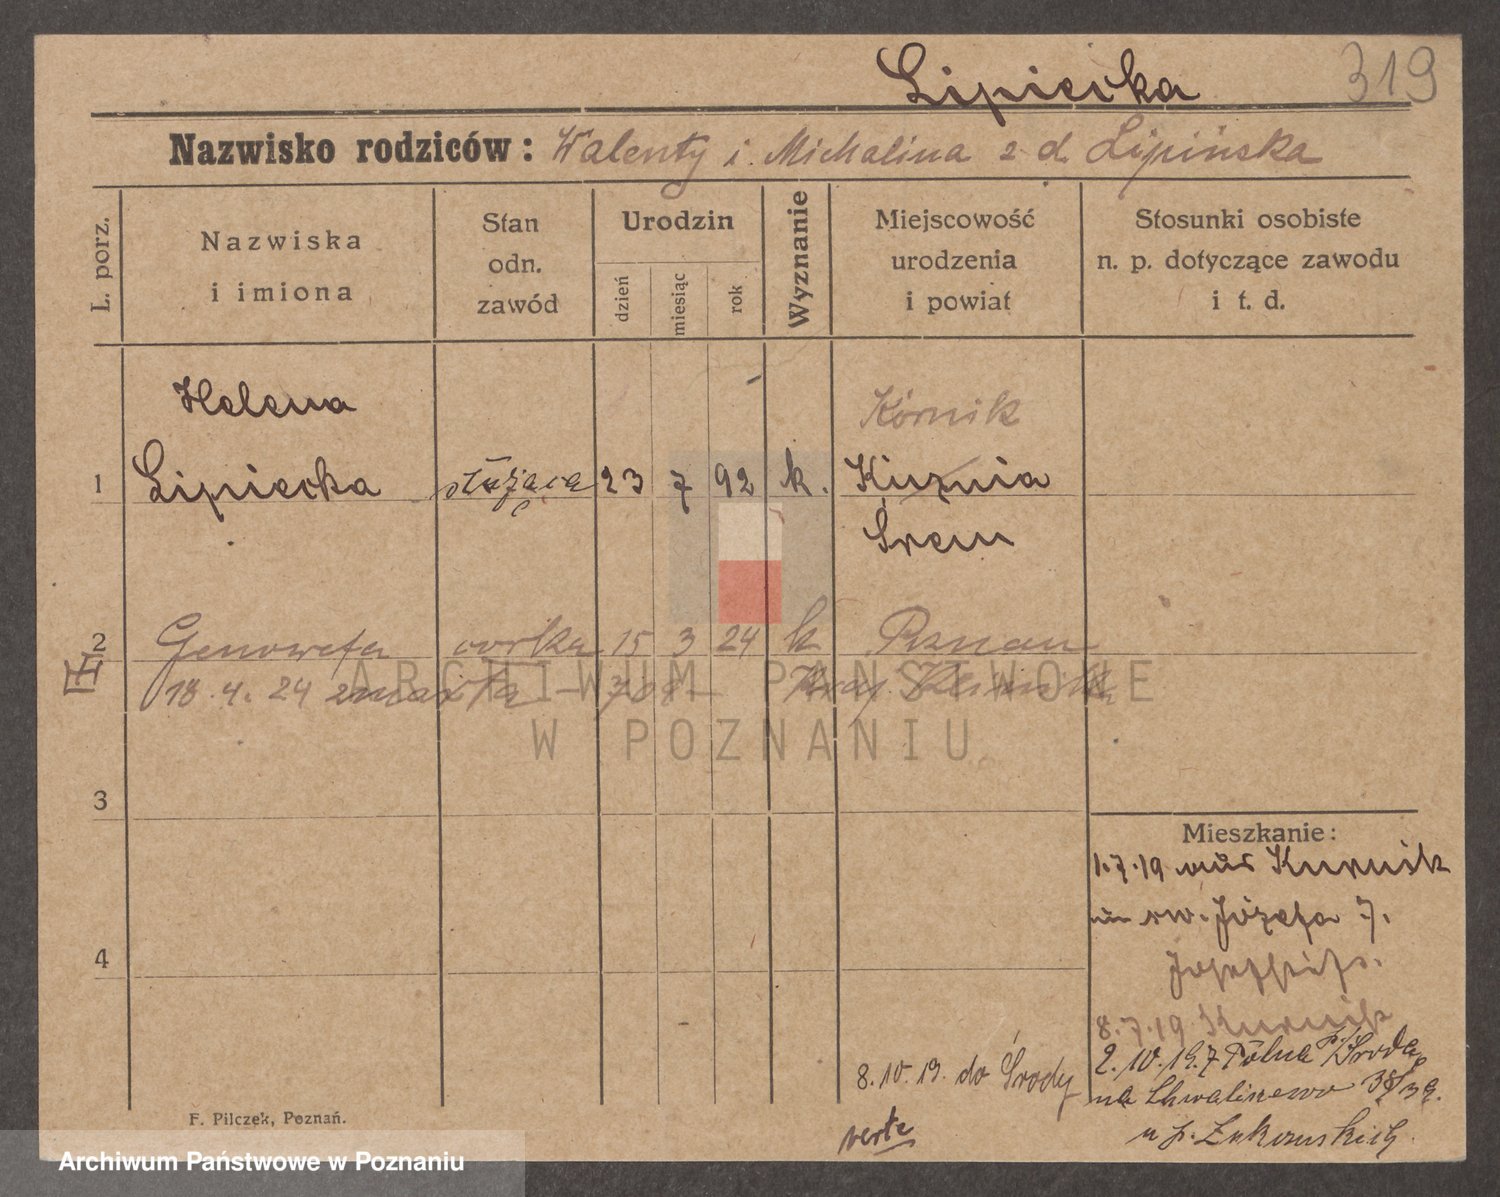 Lipiecka 319
Nazwisko rodziców: Walenty i Michalina z d. Lipińska
L. porz.
Nazwiska
i imiona
Stan
odn.
zawód
Urodzin
dzień
miesiąc
rok
Wyznanie
Miejscowość
urodzenia
i powiat
Stosunki osobiste
n. p. dotyczące zawodu
i t. d.
Helena Kórnik
1 Lipiecka służąca 23 7 92 k. Kuźnia
Śrem
2 Genowefa córka 15 3 24 k Poznań
18.4.24 zmarła
ARCHIWUM PAŃSTWOWE
W POZNANIU
3
Mieszkanie:
1.7.19 aus Kurnik
św. Józefa 7.
4
8.7.19 Kurnik
2.10.19. 7 Polna Środa
8.10.19. do Środy
na Chwaliszewo 38/39.
verte
u p.
F. Pilczek, Poznań.
Archiwum Państwowe w Poznaniu